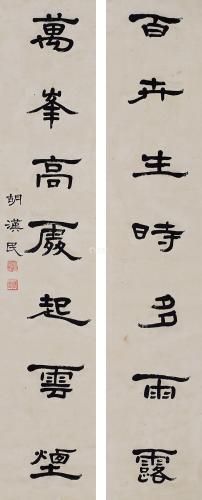 百卉生時多雨露
萬峯高處起雲煙
胡漢民